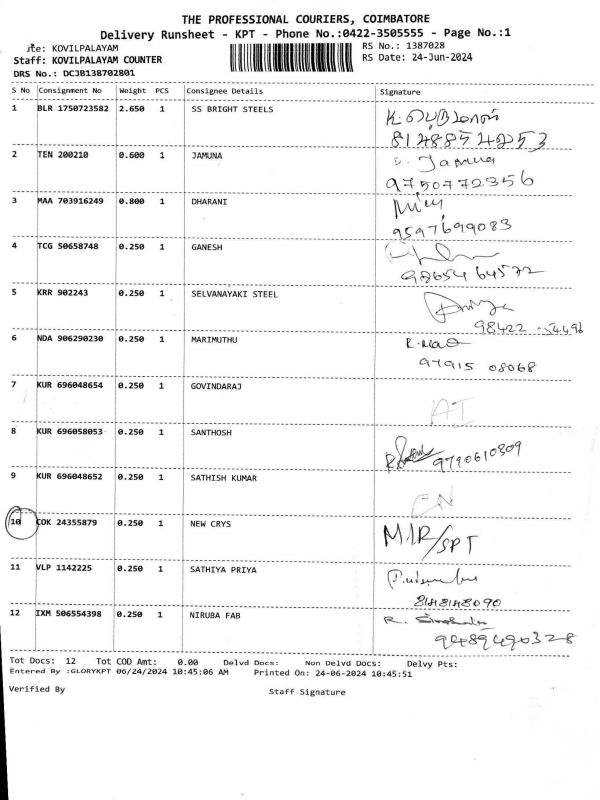 THE PROFESSIONAL COURIERS, COIMBATORE
Delivery Runsheet - KPT - Phone No.:0422-3505555 - Page No.:1
KOVILPALAYAM RS No.: 1387028
Staff: KOVILPALAYAM COUNTER RS Date: 24-Jun-2024
DRS No.: DCJB138702801
S No Consignment No Weight PCS Consignee Details Signature
1 BLR 1750723582 2.650 1 SS BRIGHT STEELS
8148854253
2 TEN 200210 0.600 1 JAMUNA Jamuna
9750772356
3 MAA 703916249 0.800 1 DHARANI
9597699083
4 TCG 50658748 0.250 1 GANESH
98654 64572
5 KRR 902243 0.250 1 SELVANAYAKI STEEL
98422
6 NDA 906290230 0.250 1 MARIMUTHU
97915 08068
7 KUR 696048654 0.250 1 GOVINDARAJ
AI
8 KUR 696058053 0.250 1 SANTHOSH
9790610309
9 KUR 696048652 0.250 1 SATHISH KUMAR
10 COK 24355879 0.250 1 NEW CRYS
M/R/SPT
11 VLP 1142225 0.250 1 SATHIYA PRIYA
8148148090
12 IXM 506554398 0.250 1 NIRUBA FAB R.
9489490328
Tot Docs: 12 Tot COD Amt: 0.00 Delvd Docs: Non Delvd Docs: Delvy Pts:
Entered By :GLORYKPT 06/24/2024 10:45:06 AM Printed On: 24-06-2024 10:45:51
Verified By Staff Signature